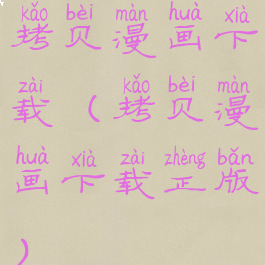 kǎo bèi màn huà xià
拷贝漫画下
zài kǎo bèi màn
载（拷贝漫
huà xià zài zhèng bǎn
画下载正版
）